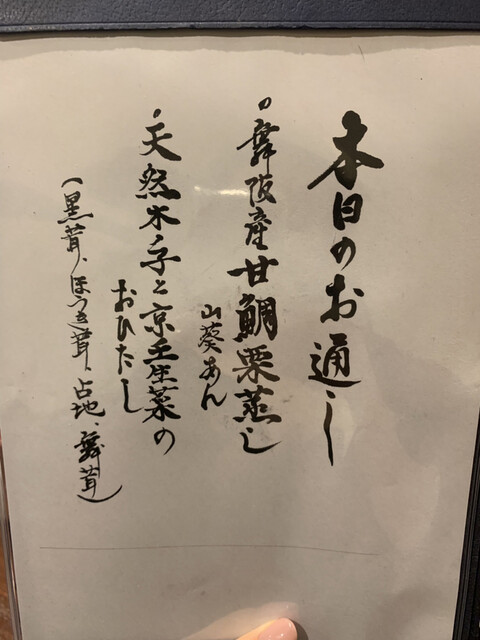 本日のお通し
・舞阪産甘鯛栗蒸し
山葵あん
・天然木ノ子と京壬生菜の
おひたし
(黒茸、ほうき茸、占地、舞茸)